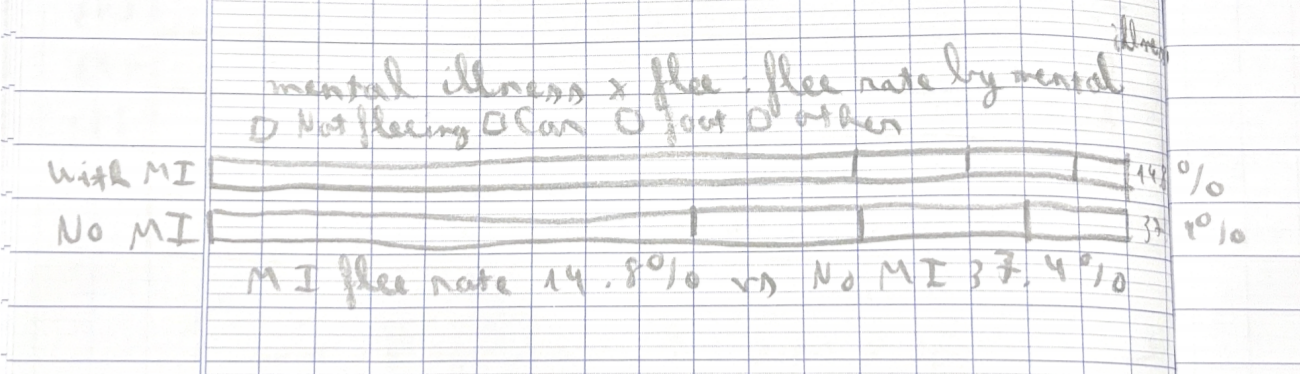 illness
mental illness x flee : flee rate by mental
Not fleeing Car foot other
With MI 148 %
No MI 37 4%
MI flee rate 14.8% vs No MI 37.4%